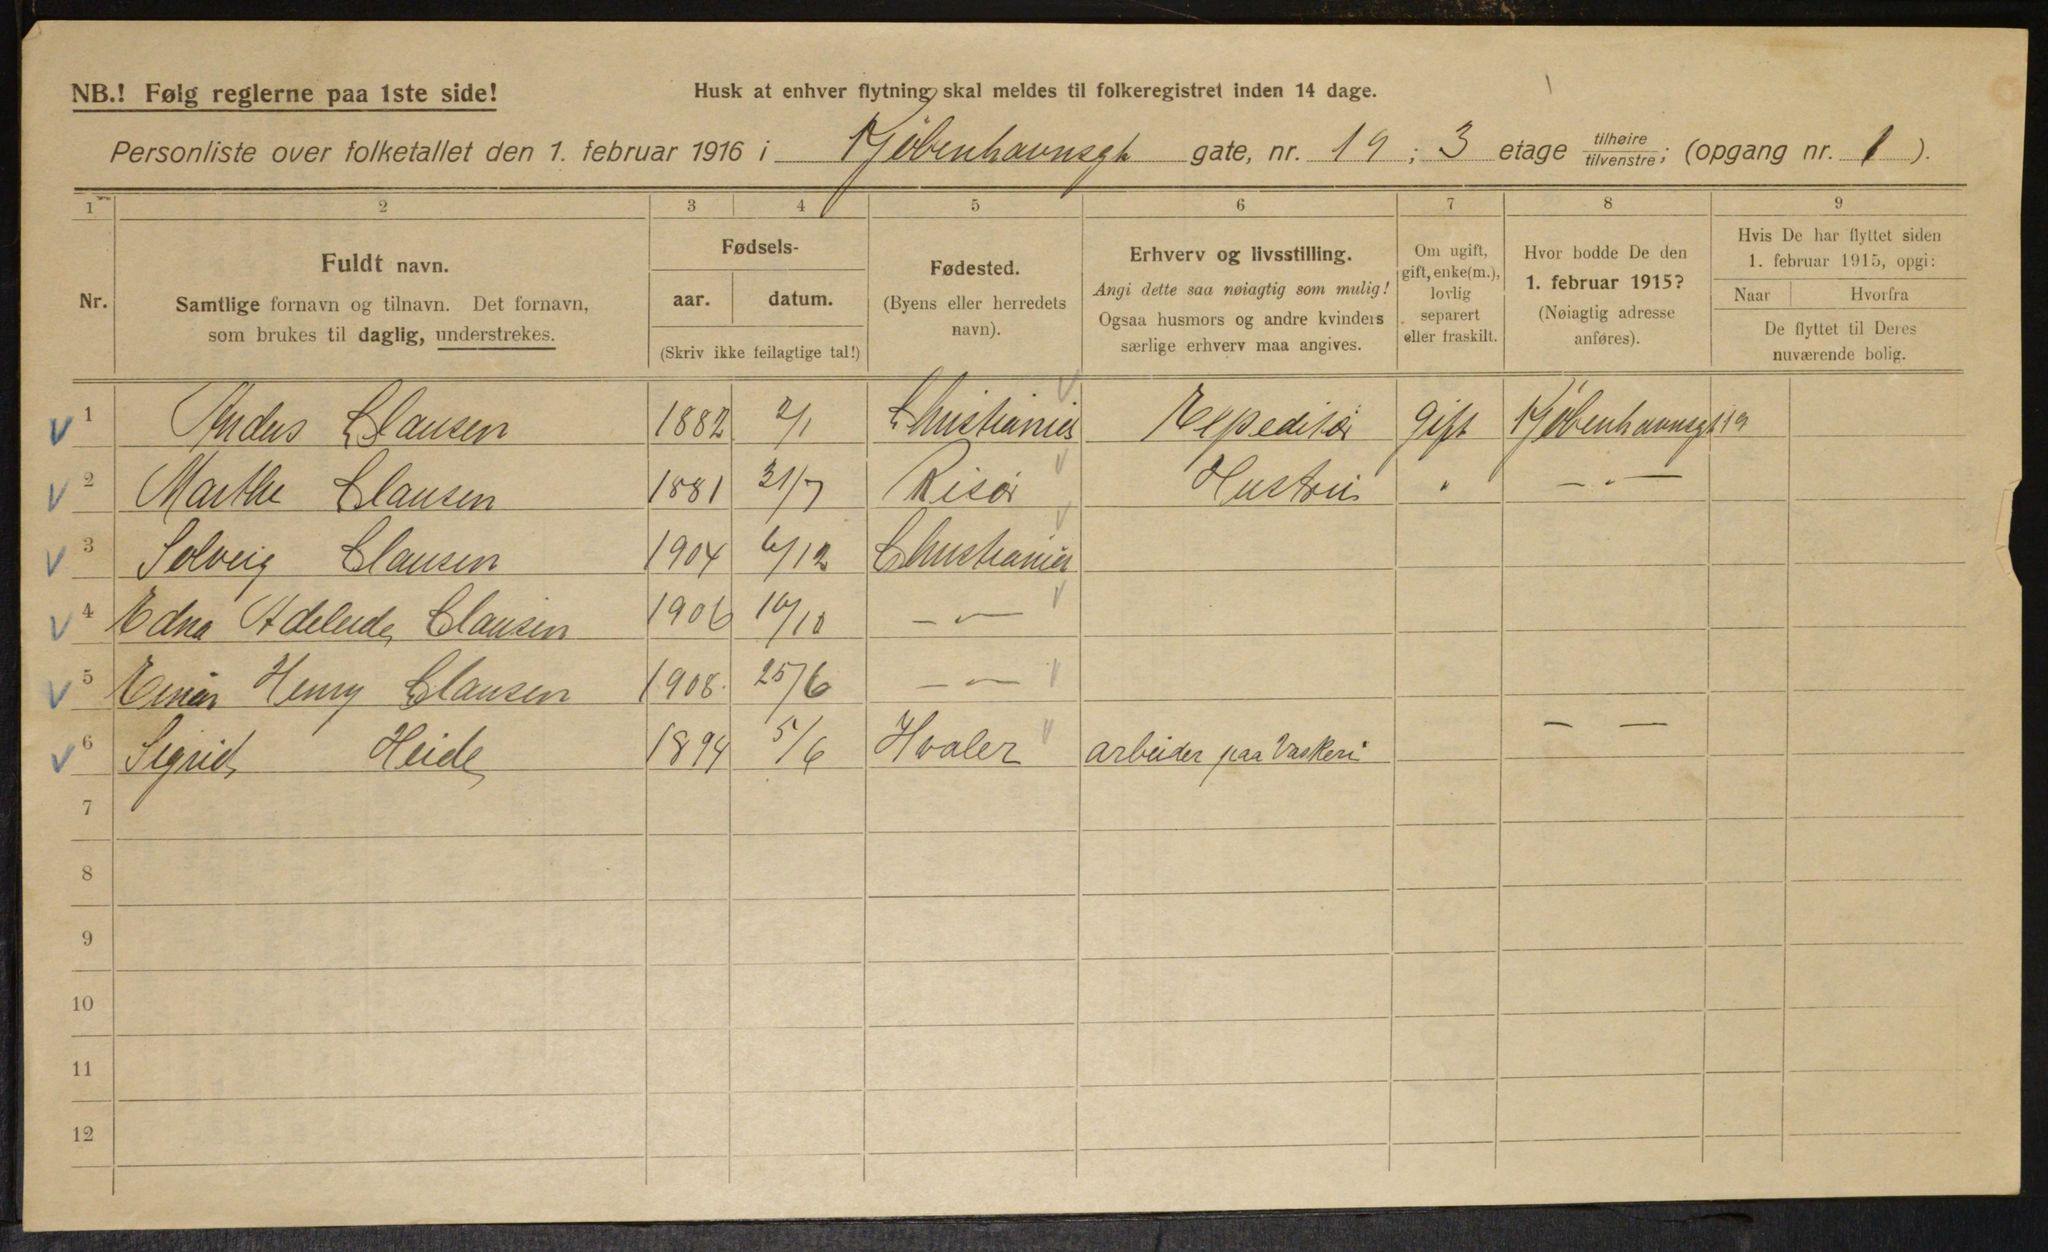 NB.! Følg reglerne paa 1ste side!
Husk at enhver flytning skal meldes til folkeregistret inden 14 dage.
Personliste over folketallet den 1. februar 1916 i Kjøbenhavnsgt gate, nr. 19 ; 3 etage tilhøire/tilvenstre; (opgang nr. 1 ).
1 2 3 4 5 6 7 8 9
Nr.
Fuldt navn.
Samtlige fornavn og tilnavn. Det fornavn,
som brukes til daglig, understrekes.
Fødsels-
aar. datum.
(Skriv ikke feilagtige tal!)
Fødested.
(Byens eller herredets
navn).
Erhverv og livsstilling.
Angi dette saa nøiagtig som mulig!
Ogsaa husmors og andre kvinders
særlige erhverv maa angives.
Om ugift,
gift, enke(m.),
lovlig
separert
eller fraskilt.
Hvor bodde De den
1. februar 1915?
(Nøiagtig adresse
anføres).
Hvis De har flyttet siden
1. februar 1915, opgi:
Naar Hvorfra
De flyttet til Deres
nuværende bolig.
V 1 Anders Clausen 1882 2/1 Christiania V Expeditør gift Kjøbenhavnsgt 19
V 2 Marthe Clausen 1881 31/7 Risør V Hustru " — " —
V 3 Solveig Clausen 1904 6/12 Christiania V
V 4 Edna Adeleide Clausen 1906 10/10 — " — V
V 5 Einar Henry Clausen 1908 25/6 — " — V
V 6 Sigrid Heide 1894 5/6 Hvaler V arbeider paa Vaskeri — —
7
8
9
10
11
12